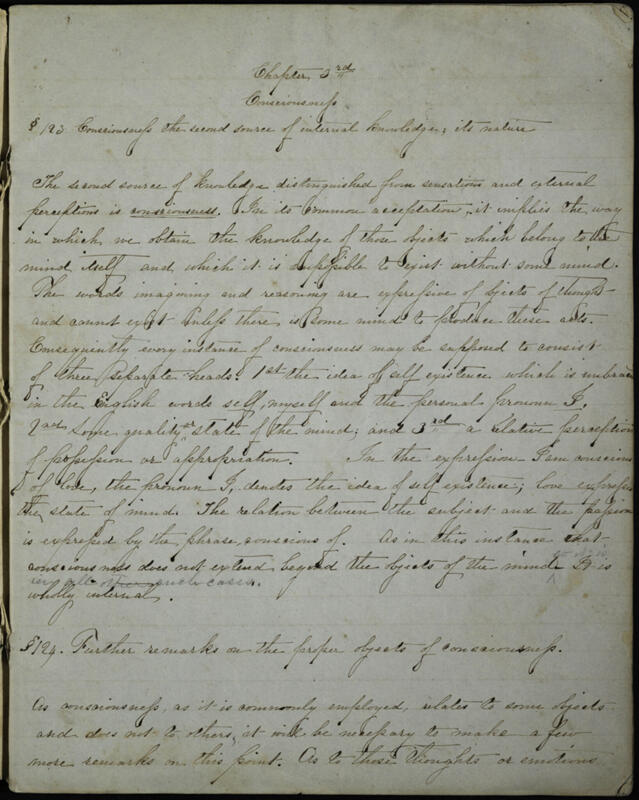 Chapter, 3rd
Consciousness
§ 123 Consciousness the second source of internal knowledge; its nature
The second source of knowledge distinguished from sensations and external
perceptions is consciousness. In its common acceptation, it implies the way
in which we obtain the knowledge of those objects which belong to the
mind itself and which it is impossible to exist without some mind.
The words imagining and reasoning are expressive of objects of thought
and cannot exist unless there is some mind to produce these acts.
Consequently every instance of consciousness may be supposed to consist
of three separate heads. 1st the idea of self existence which is
in the English words self, myself and the personal pronoun I,
2nd some quality or state of the mind; and 3rd a relative perception
of possession or appropriation. In the expression I am conscious
of love, the pronoun I, denotes the idea of self existence; love
the state of mind. The relation between the subject and the passion
is expressed by the phrase, conscious of. As in this instance
consciousness does not extend beyond the objects of the mind It is
all other such cases.
wholly internal.
§ 124. Further remarks on the proper objects of consciousness.
As consciousness, as it is commonly employed, relates to some objects
and does not to others, it will be necessary to make a few
more remarks on this point. As to those thoughts or emotions